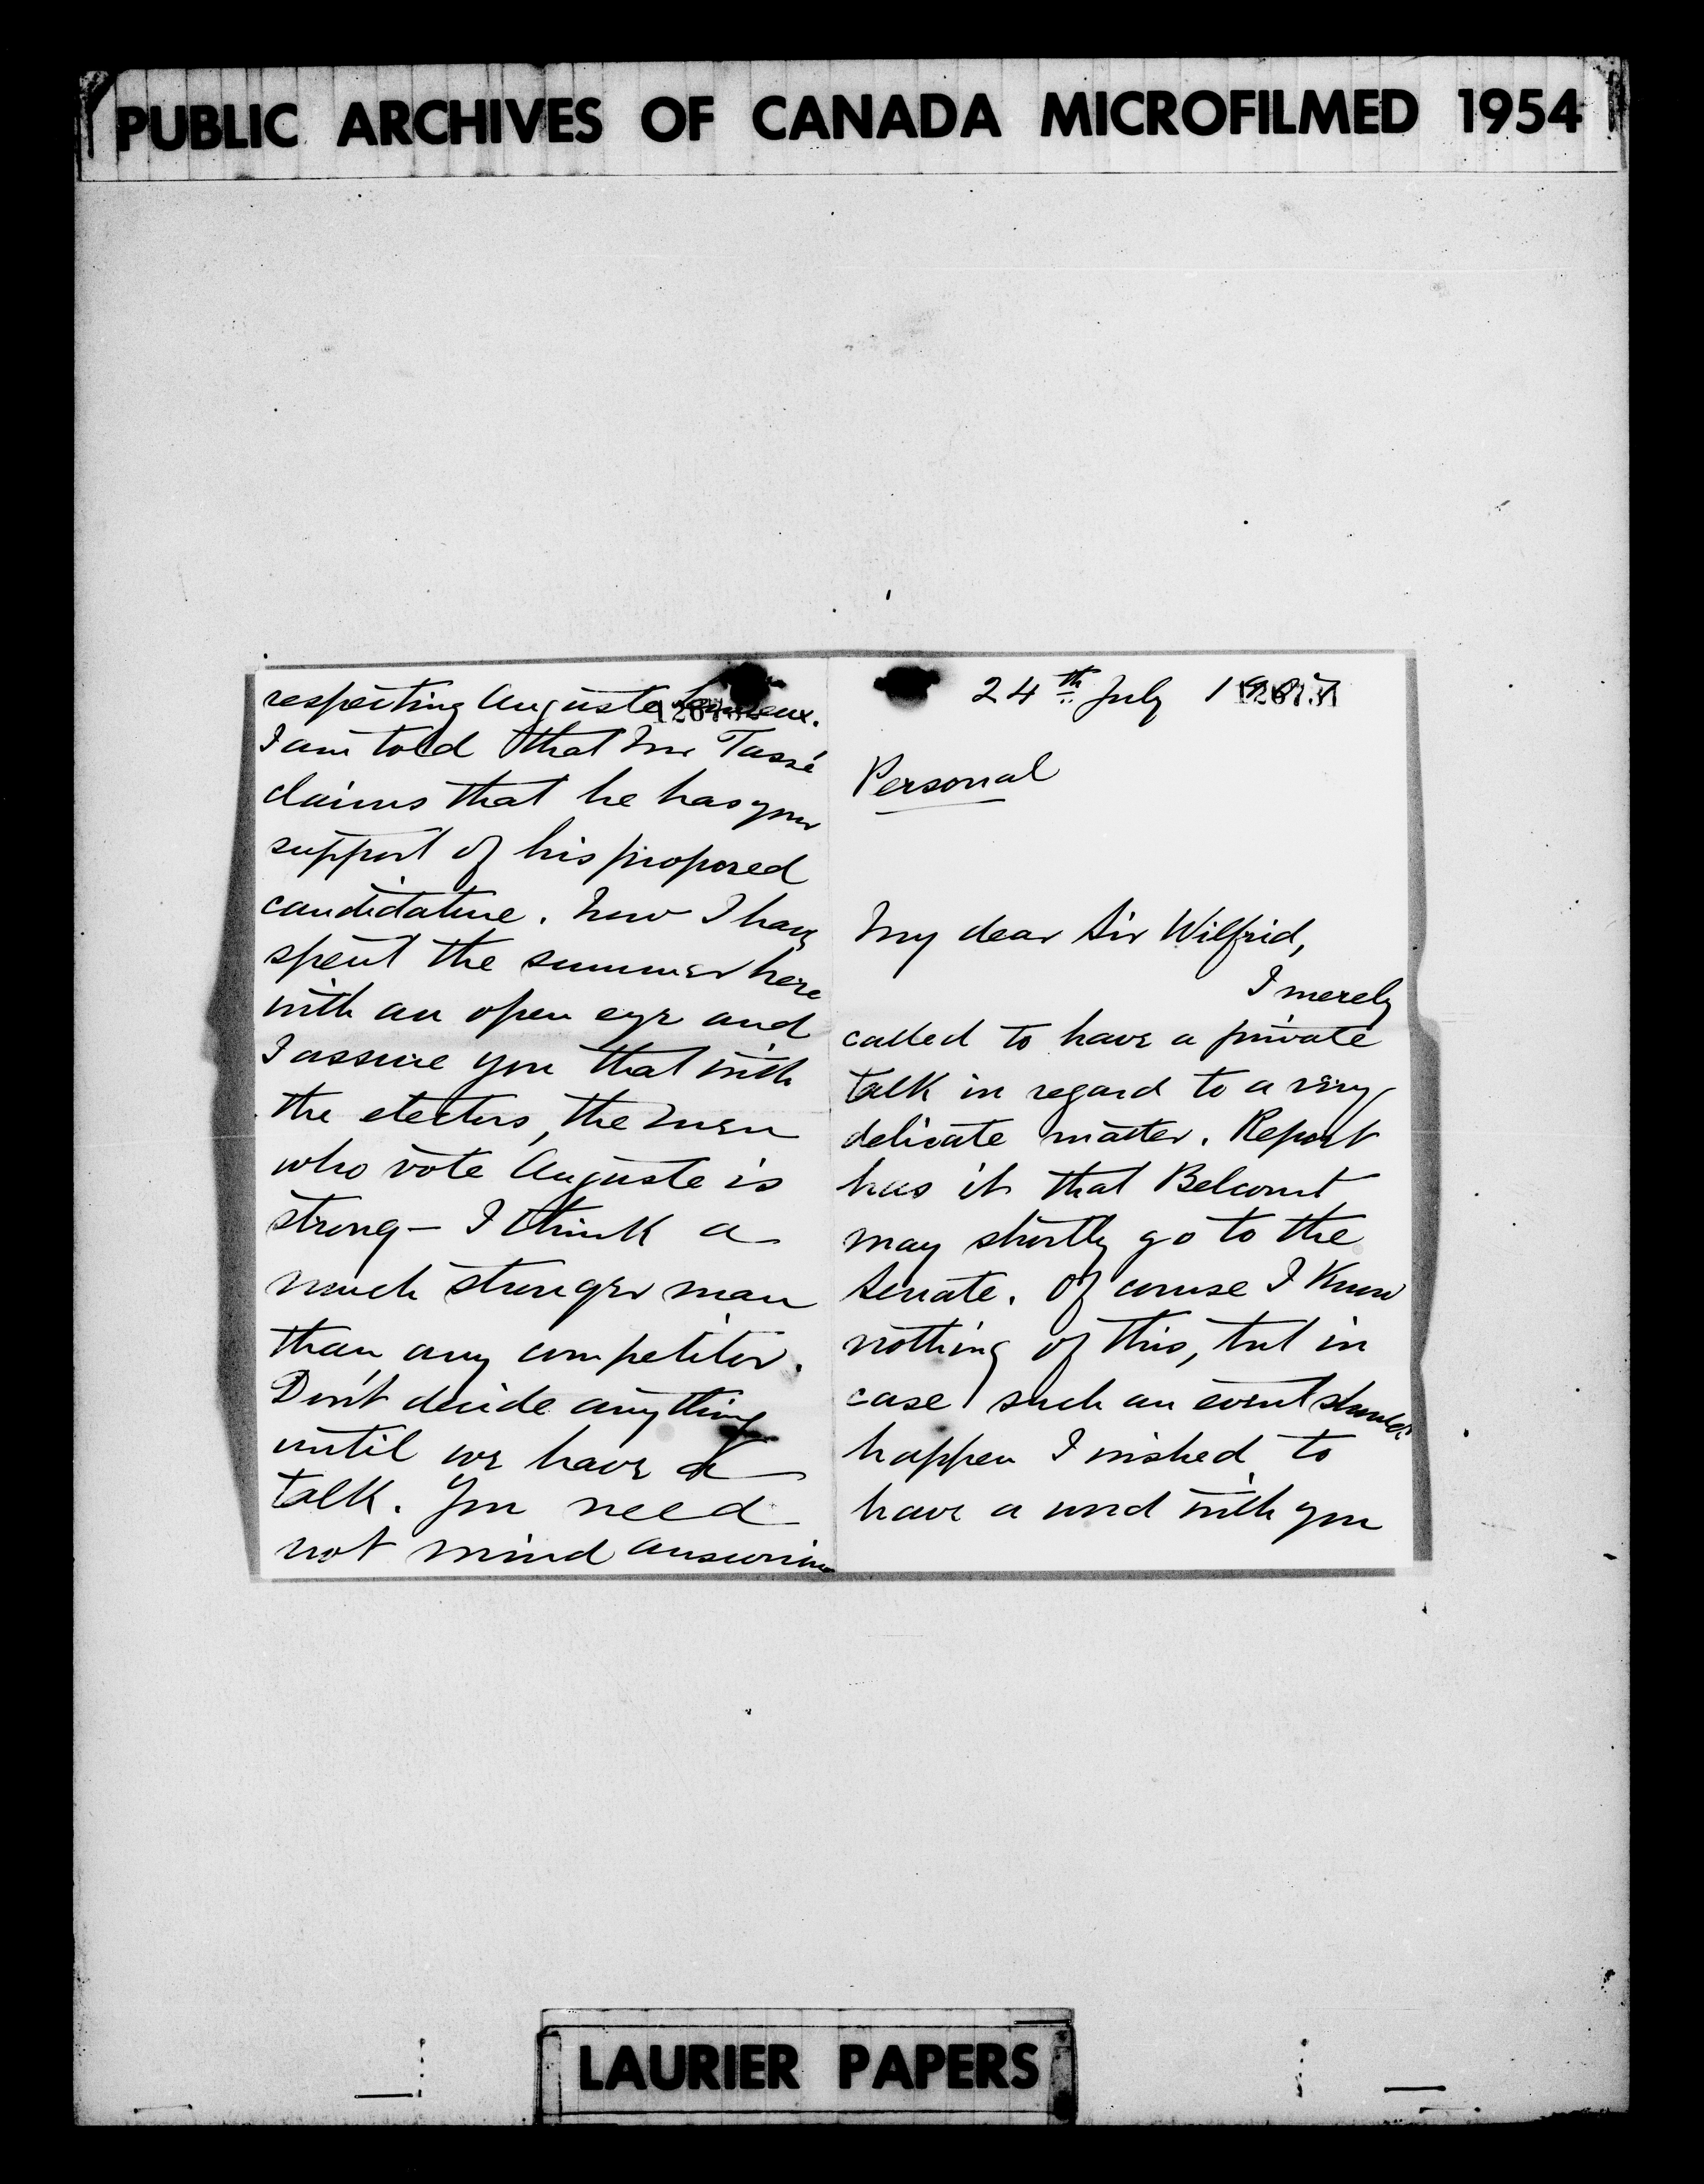 PUBLIC ARCHIVES OF CANADA MICROFILMED 1954
24th July 190
Personal
My dear Sir Wilfrid,
I merely
called to have a private
talk in regard to a very
delicate matter. Report
has it that Belcourt
may shortly go to the
Senate. Of course I know
nothing of this, but in
case such an event should
happen I wished to
have a word with you
respecting Auguste Lemieux.
I am told that Mr Tassé
claims that he has your
support of his proposed
candidature. Now I have
spent the summer here
with an open eye and
I assure you that with
the electors, the men
who vote Auguste is
strong - I think a
much stronger man
than any competitor.
Don't decide anything
until we have a
talk. You need
not mind answering
LAURIER PAPERS